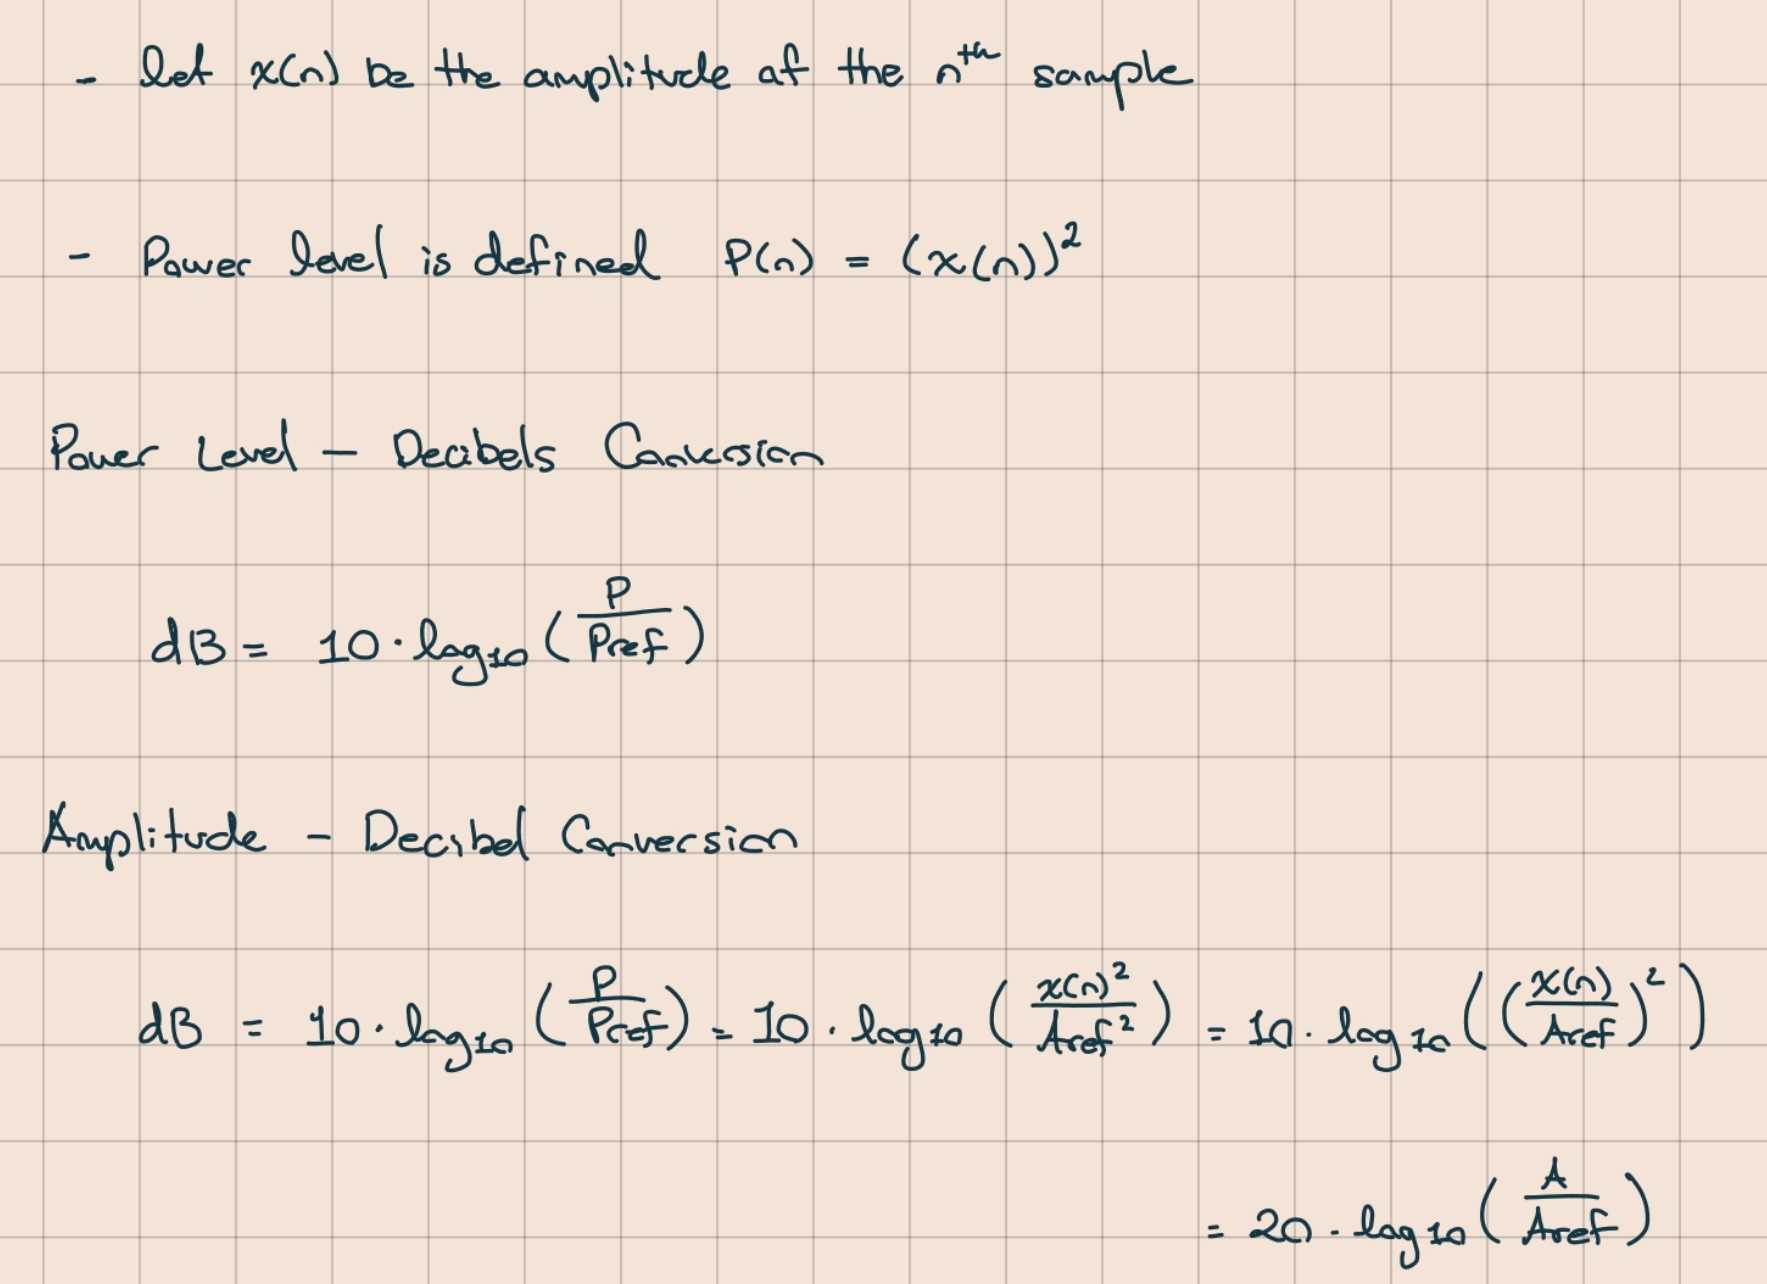 - let x(n) be the amplitude of the nᵗʰ sample
- Power level is defined P(n) = (x(n))²
Power Level - Decibels Conversion
dB = 10 · log₁₀ (P/Pref)
Amplitude - Decibel Conversion
dB = 10 · log₁₀ (P/Pref) = 10 · log₁₀ (x(n)²/Aref²) = 10 · log₁₀ ((x(n)/Aref)²)
= 20 · log₁₀ (A/Aref)